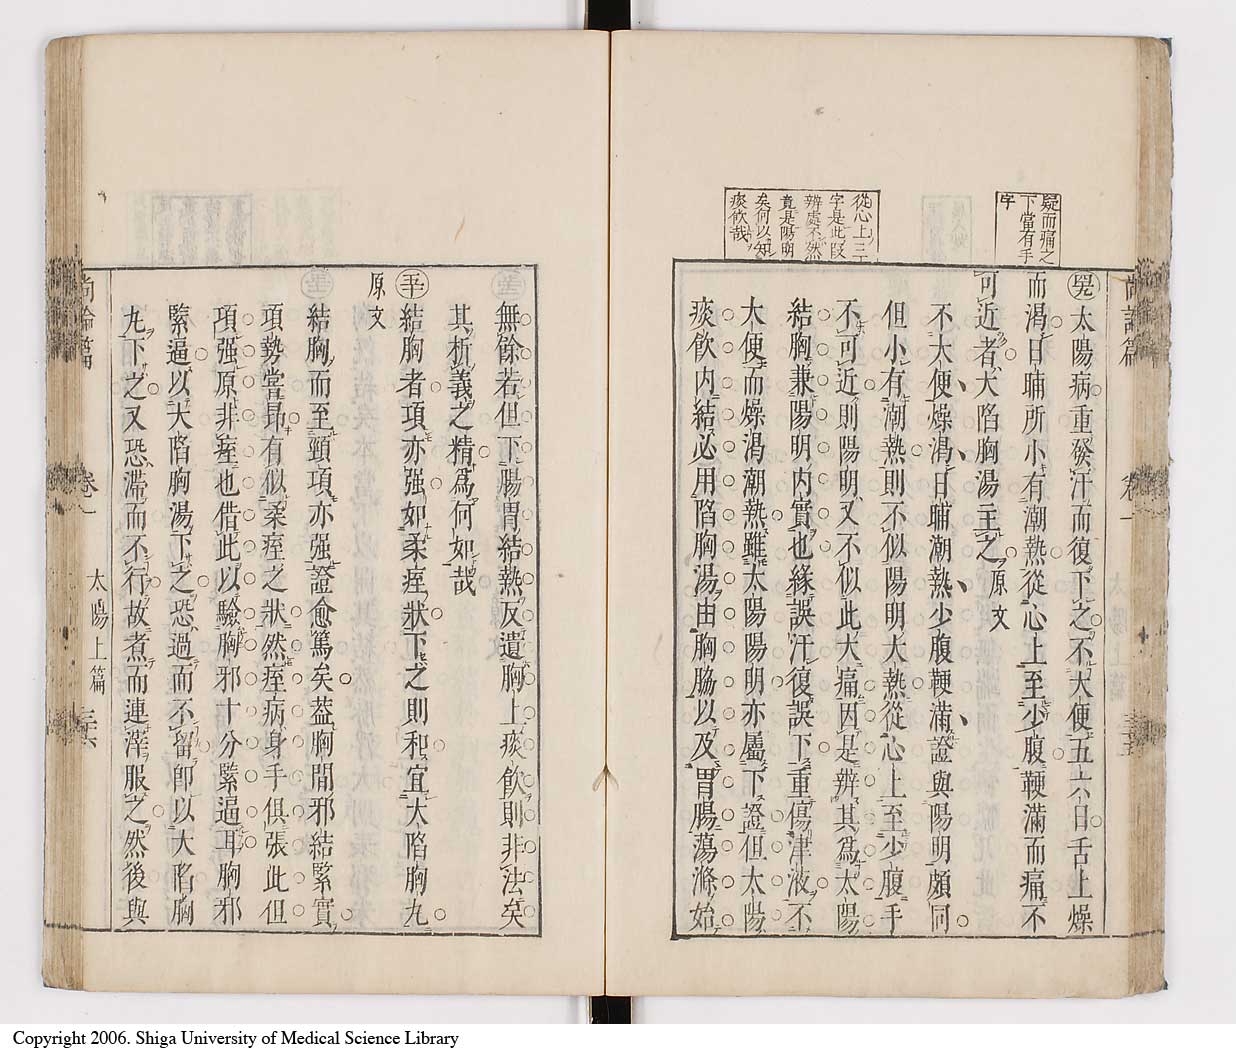 疑而痛之
下當有手
字
從心上三十
字是此段
辨處不然
竟是陽明
矣何以知
痰飲哉
太陽病重發汗而復下之不大便五六日舌上燥
而渴日晡所小有潮熱從心上至少腹鞕滿而痛不
可近者大陷胸湯主之原文
不大便燥渴日晡潮熱少腹鞕滿證與陽明頗同
但小有潮熱則不似陽明大熱從心上至少腹手
不可近則陽明又不似此大痛因是辨其為太陽
結胸兼陽明內實也緣誤汗復誤下重傷津液不
大便而燥渴潮熱雖太陽陽明亦屬下證但太陽
痰飲內結必用陷胸湯由胸脇以及胃腸蕩滌始
尚論篇
卷一
無餘若但下腸胃結熱反遺胸上痰飲則非法矣
其析義之精為何如哉
結胸者項亦强如柔痓狀下之則和宜大陷胸丸
原文
結胸而至頸項亦强證愈篤矣葢胸間邪結緊實
項勢當昂有似柔痓之狀然痓病身手俱張此但
項强原非痓也借此以驗胸邪十分緊逼耳胸邪
緊逼以大陷胸湯下之恐過而不留卽以大陷胸
丸下之又恐滯而不行故煮而連滓服之然後與
尚論篇
卷一
太陽上篇
三十六
Copyright 2006. Shiga University of Medical Science Library